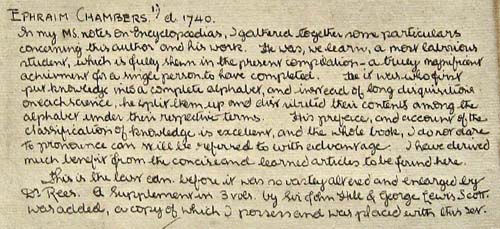 EPHRAIM CHAMBERS. 1) d. 1740.
In my MS. notes on Encyclopædias, I gathered together some particulars
concerning this author and his work. He was, we learn, a most laborious
student, which is fully shewn in the present compilation - a truly magnificent
achievment for a single person to have completed. He it was who first
put knowledge into a complete alphabet, and instead of long disquisitions
on each science, he split them up and distributed their contents among the
alphabet under their respective terms. His preface, and account of the
classification of knowledge is excellent, and the whole book, I do not dare
to pronounce can still be referred to with advantage. I have derived
much benefit from the concise and learned articles to be found here.
This is the last edn. before it was so vastly altered and enlarged by
Dr Rees. A Supplement in 3 vols. by Sir John Hill & George Lewis Scott.
was added, a copy of which I possess and was placed with this set.